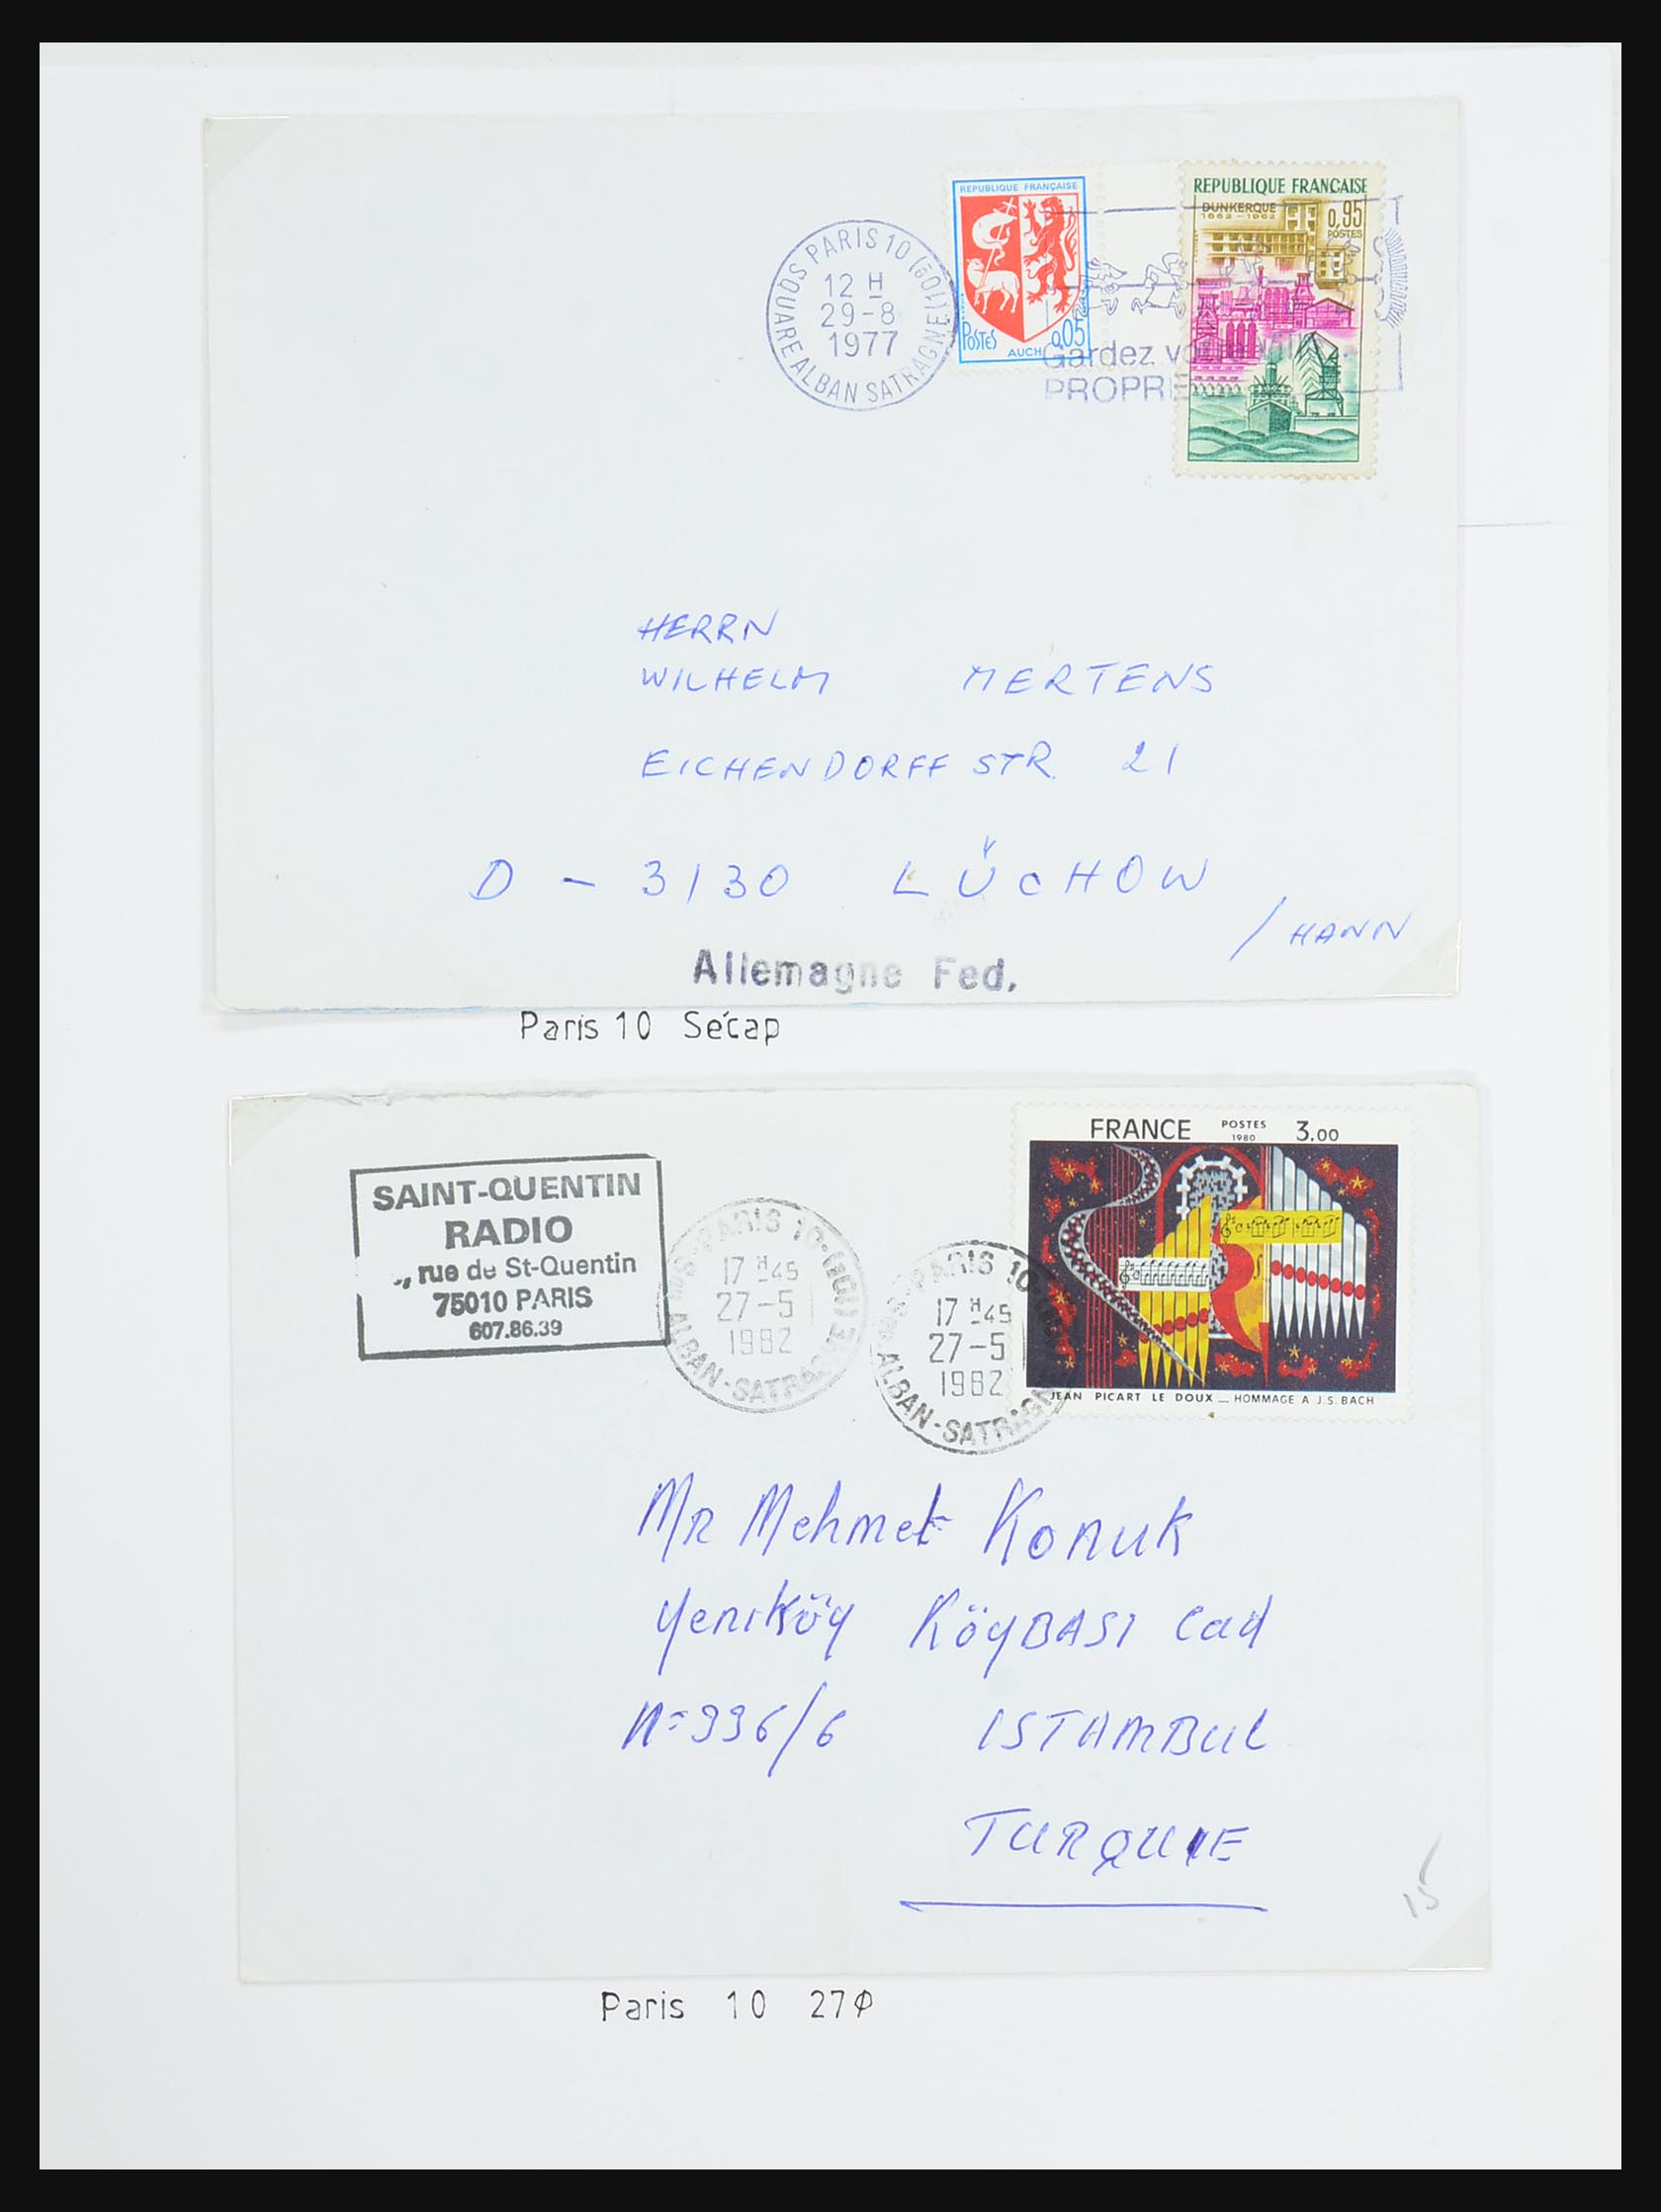 REPUBLIQUE FRANÇAISE
POSTES
AUCH 0,05
REPUBLIQUE FRANÇAISE
DUNKERQUE
1662-1962
0,95
POSTES
PARIS 10 (10E)
SQUARE ALBAN SATRAGNE
12 H
29-8
1977
Gardez votre
PROPRE
HERRN
WILHELM MERTENS
EICHENDORFF STR. 21
D - 3130 LÜCHOW
/ HANN
Allemagne Fed.
Paris 10 Sécap
FRANCE POSTES 1980 3.00
JEAN PICART LE DOUX _ HOMMAGE A J.S. BACH
SAINT-QUENTIN
RADIO
rue de St-Quentin
75010 PARIS
607.86.39
PARIS 10
17 H45
27-5
1982
ALBAN-SATRAGNE
PARIS 10
17 H45
27-5
1982
ALBAN-SATRAGNE
Mr Mehmet Konuk
Yeniköy KöyBASI Cad
N=336/6 ISTAMBUL
TURQUIE
15
Paris 10 27φ